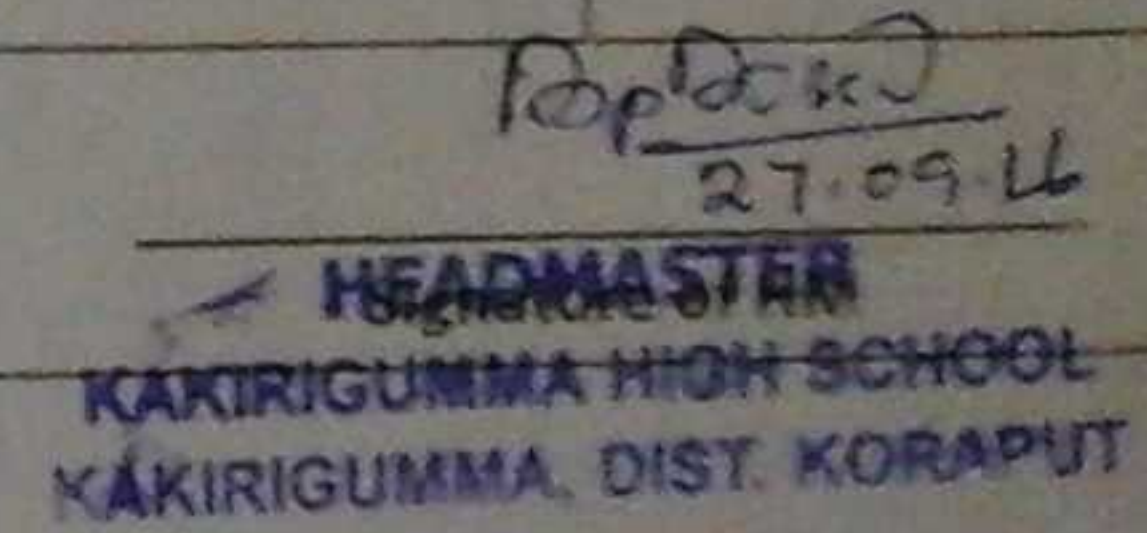 27.09.16
HEADMASTER
Signature of HM
KAKIRIGUMMA HIGH SCHOOL
KAKIRIGUMMA, DIST. KORAPUT